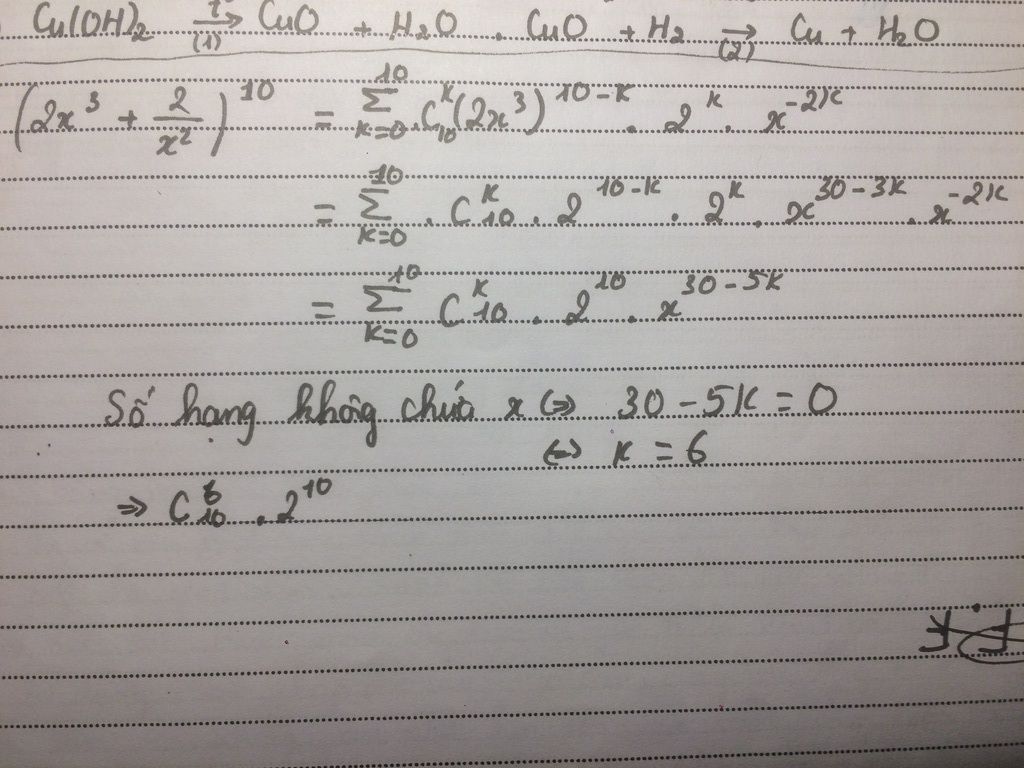 Cu(OH)₂ —t°→ (1) CuO + H₂O . CuO + H₂ → (2) Cu + H₂O
(2x³ + 2/x²)¹⁰ = Σ_{k=0}^{10} . C_{10}^{k} (2x³)^{10-k} . 2^k . x^{-2k}
= Σ_{k=0}^{10} . C_{10}^{k} . 2^{10-k} . 2^k . x^{30-3k} . x^{-2k}
= Σ_{k=0}^{10} C_{10}^{k} . 2^{10} . x^{30-5k}
Số hạng không chứa x ⇔ 30 - 5k = 0
⇔ k = 6
⇒ C_{10}^{6} . 2^{10}